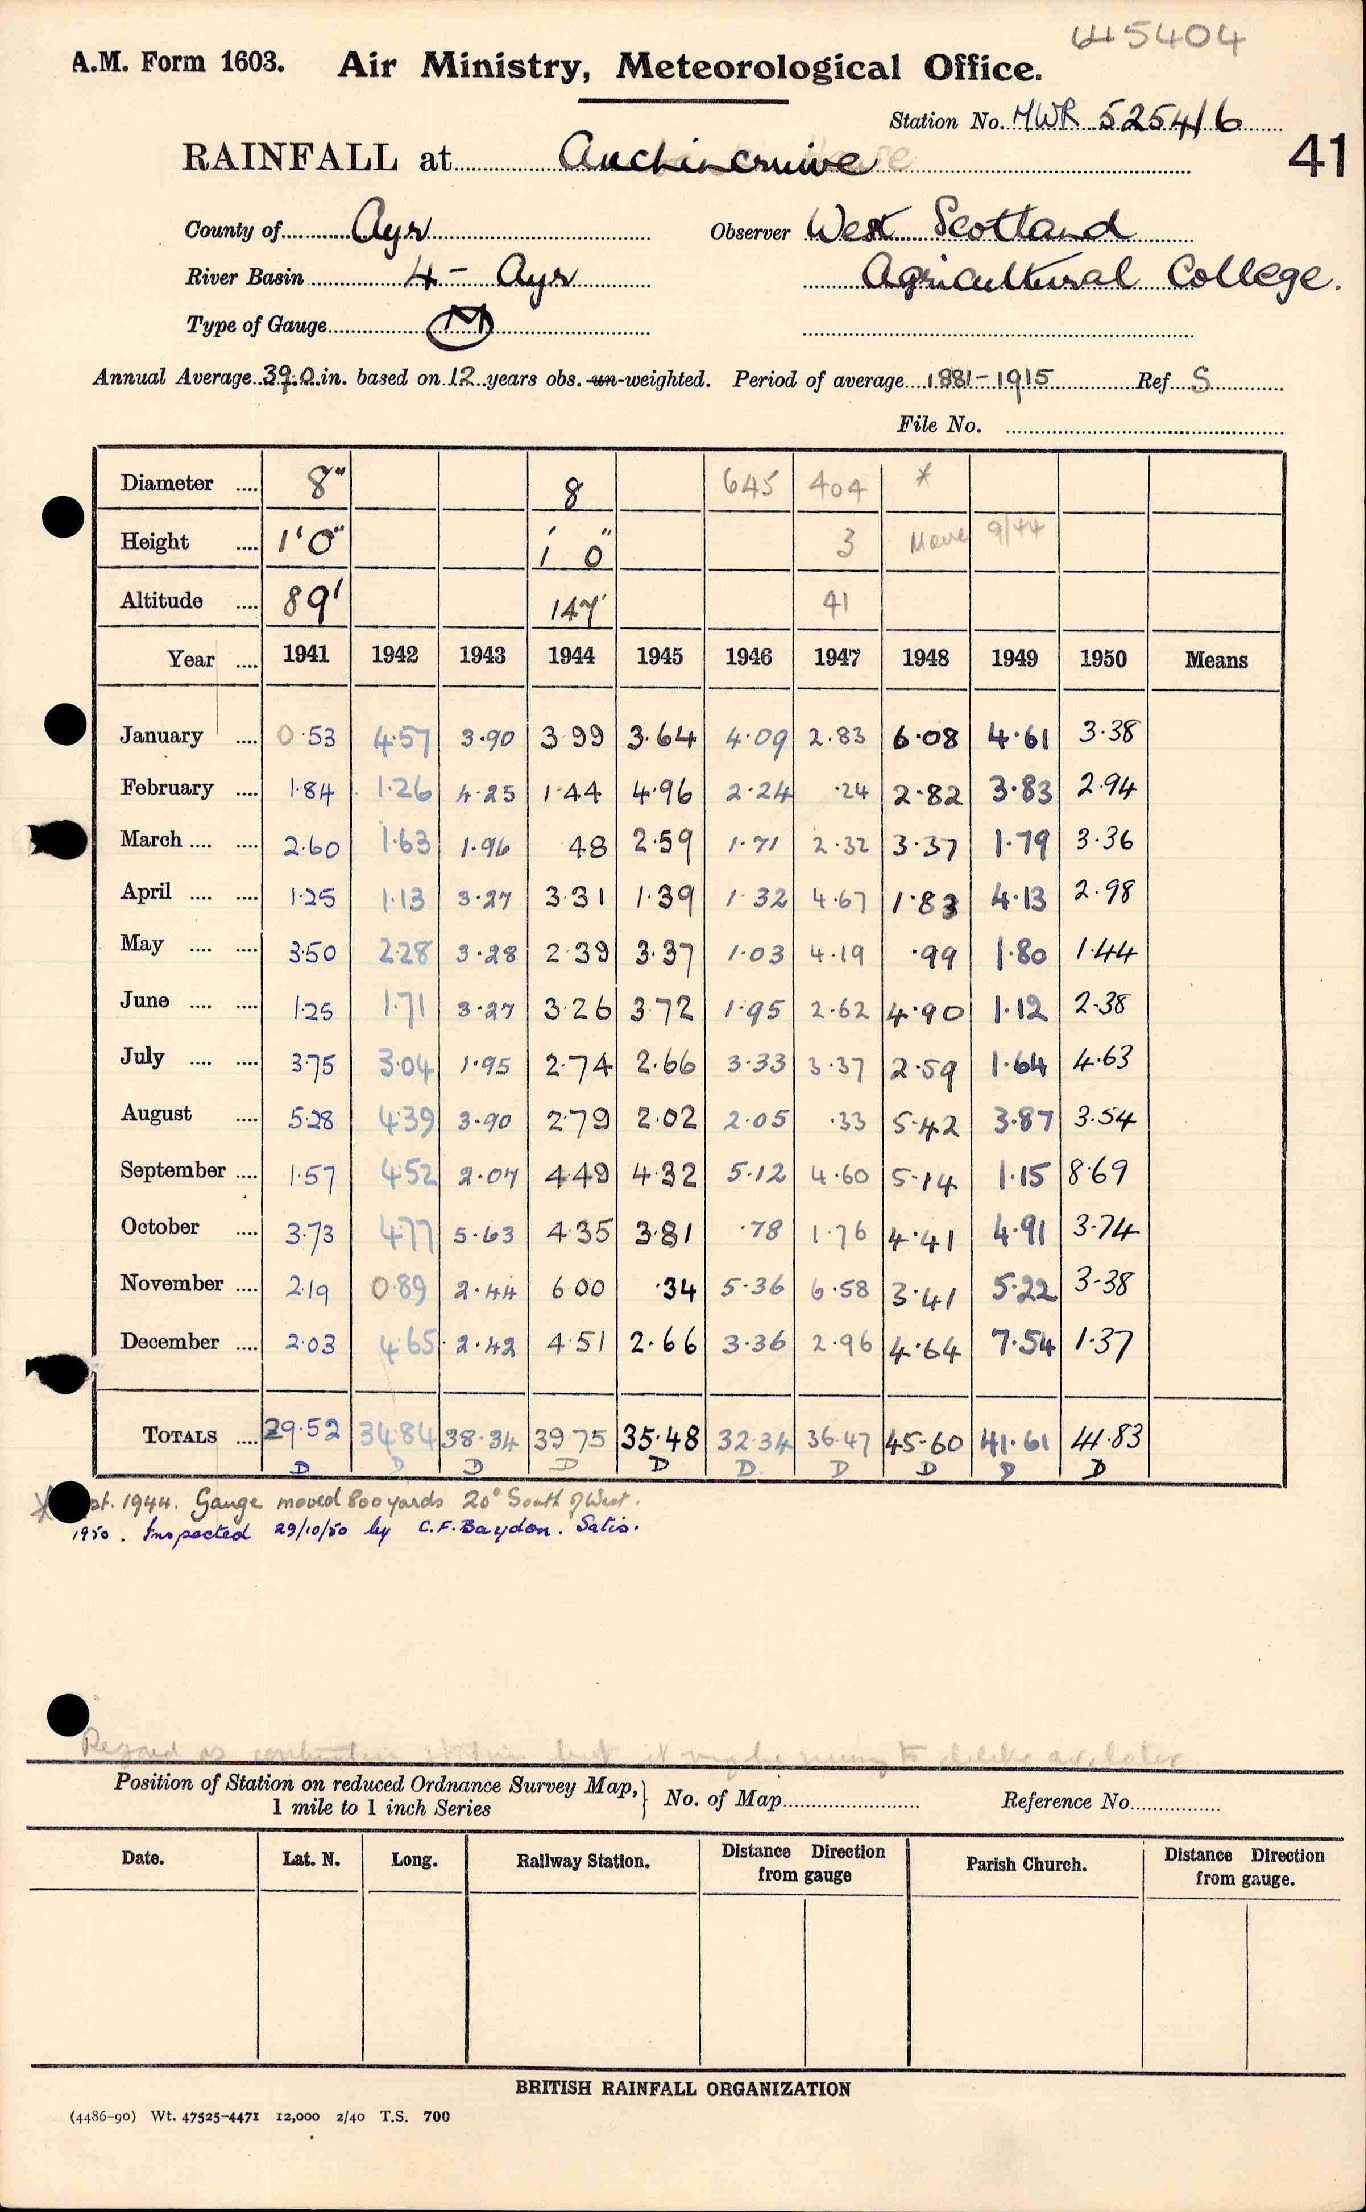 645404
A.M. Form 1603. Air Ministry, Meteorological Office.
Station No. MWR 5254/6
41
RAINFALL at Auchincruive
County of Ayr Observer West Scotland
River Basin 4 - Ayr Agricultural College.
Type of Gauge M
Annual Average 39.0 in. based on 12 years obs. un-weighted. Period of average 1881-1915 Ref S
File No.
Diameter 8" 8 645 404 *
Height 1'0" 1' 0" 3 Move 9/44
Altitude 89' 147' 41
Year 1941 1942 1943 1944 1945 1946 1947 1948 1949 1950 Means
January 0.53 4.57 3.90 3.99 3.64 4.09 2.83 6.08 4.61 3.38
February 1.84 1.26 4.25 1.44 4.96 2.24 .24 2.82 3.83 2.94
March 2.60 1.63 1.96 48 2.59 1.71 2.32 3.37 1.79 3.36
April 1.25 1.13 3.27 3.31 1.39 1.32 4.67 1.83 4.13 2.98
May 3.50 2.28 3.28 2.39 3.37 1.03 4.19 .99 1.80 1.44
June 1.25 1.71 3.27 3.26 3.72 1.95 2.62 4.90 1.12 2.38
July 3.75 3.04 1.95 2.74 2.66 3.33 3.37 2.59 1.64 4.63
August 5.28 4.39 3.90 2.79 2.02 2.05 .33 5.42 3.87 3.54
September 1.57 4.52 2.07 4.49 4.32 5.12 4.60 5.14 1.15 8.69
October 3.73 4.77 5.63 4.35 3.81 .78 1.76 4.41 4.91 3.74
November 2.19 0.89 2.44 6.00 .34 5.36 6.58 3.41 5.22 3.38
December 2.03 4.65 2.42 4.51 2.66 3.36 2.96 4.64 7.54 1.37
TOTALS 29.52 34.84 38.34 39.75 35.48 32.34 36.47 45.60 41.61 41.83
D D D D D D D D D D
* pt. 1944. Gauge moved 800 yards 20° South of West.
1950. Inspected 29/10/50 by C.F. Baydon. Satis.
Regard as station but it may be to later
Position of Station on reduced Ordnance Survey Map, 1 mile to 1 inch Series } No. of Map Reference No.
Date. Lat. N. Long. Railway Station. Distance Direction from gauge Parish Church. Distance Direction from gauge.
BRITISH RAINFALL ORGANIZATION
(4486-90) Wt. 47525-4471 12,000 2/40 T.S. 700